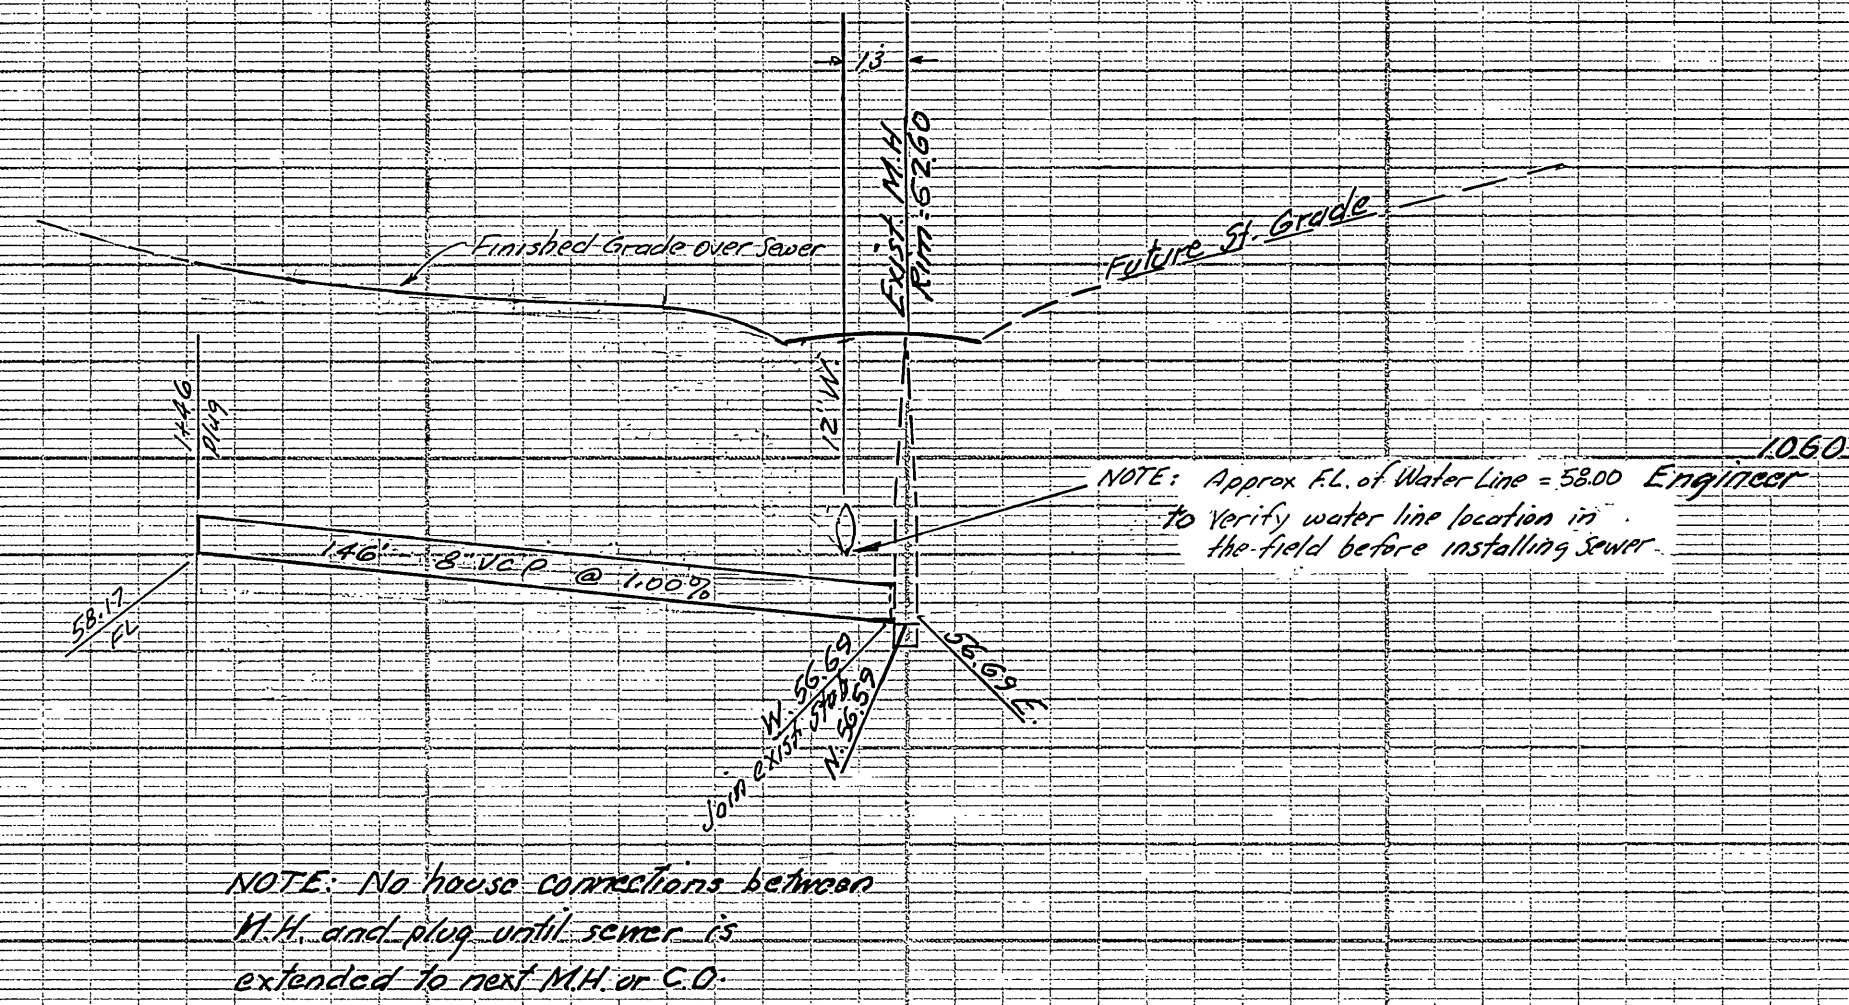 13'
Exist. M.H.
Rim: 62.60
Finished Grade over Sewer
Future St. Grade
1+46
Plug
12" W.
1060
NOTE: Approx F.L. of Water Line = 58.00 Engineer
to Verify water line location in
the field before installing sewer.
146' - 8" VCP @ 1.00%
58.17
FL
W. 56.69
Join exist. Stub
N. 56.59
56.69 E.
NOTE: No house connections between
M.H. and plug until sewer is
extended to next M.H. or C.O.